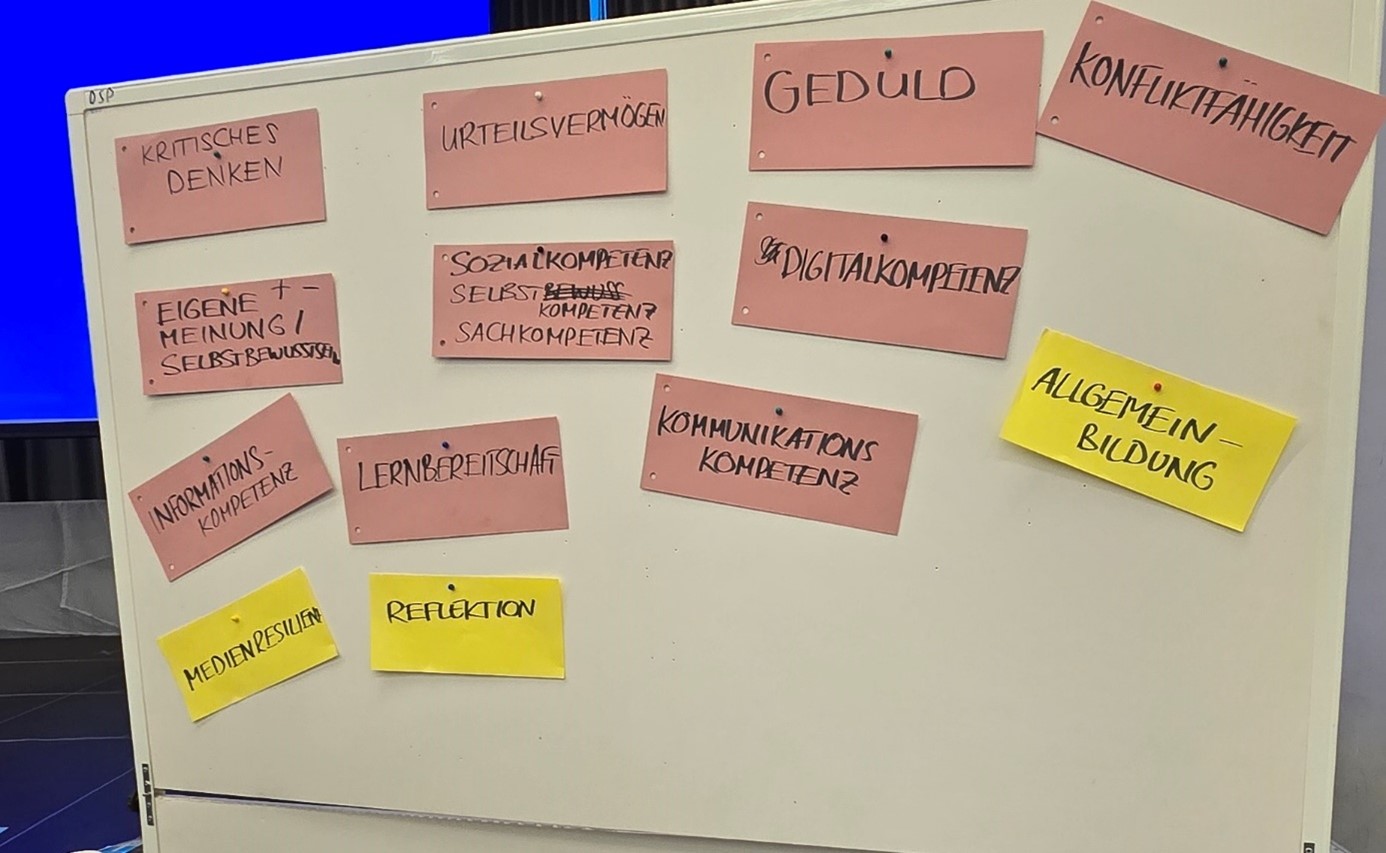 DSP
KRITISCHES
DENKEN
URTEILSVERMÖGEN
GEDULD
KONFLIKTFÄHIGKEIT
EIGENE + -
MEINUNG /
SELBSTBEWUSSTSEIN
SOZIALKOMPETENZ
SELBST BEWUSS
KOMPETENZ
SACHKOMPETENZ
DIGITALKOMPETENZ
INFORMATIONS-
KOMPETENZ
LERNBEREITSCHAFT
KOMMUNIKATIONS
KOMPETENZ
ALLGEMEIN-
BILDUNG
MEDIENRESILIENZ
REFLEKTION